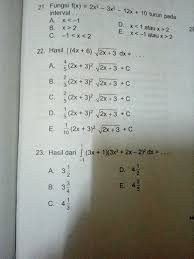 21. Fungsi f(x) = 2x³ – 3x² – 12x + 10 turun pada
interval . . . .
A. x < –1
B. x > 2
C. –1 < x < 2
D. x < 1 atau x > 2
E. x < –1 atau x > 2
22. Hasil ∫(4x + 6) √2x + 3 dx = . . . .
A. (2x + 3)² √2x + 3 + C
B. (2x + 3)² √2x + 3 + C
C. (2x + 3)² √2x + 3 + C
D. (2x + 3)² √2x + 3 + C
E. (2x + 3)² √2x + 3 + C
23. Hasil dari ∫ (3x + 1)(3x² + 2x – 2)² dx = . . . .
A. 3 1/2
B. 3 3/4
C. 4 1/3
D. 4 1/2
E. 4 3/4